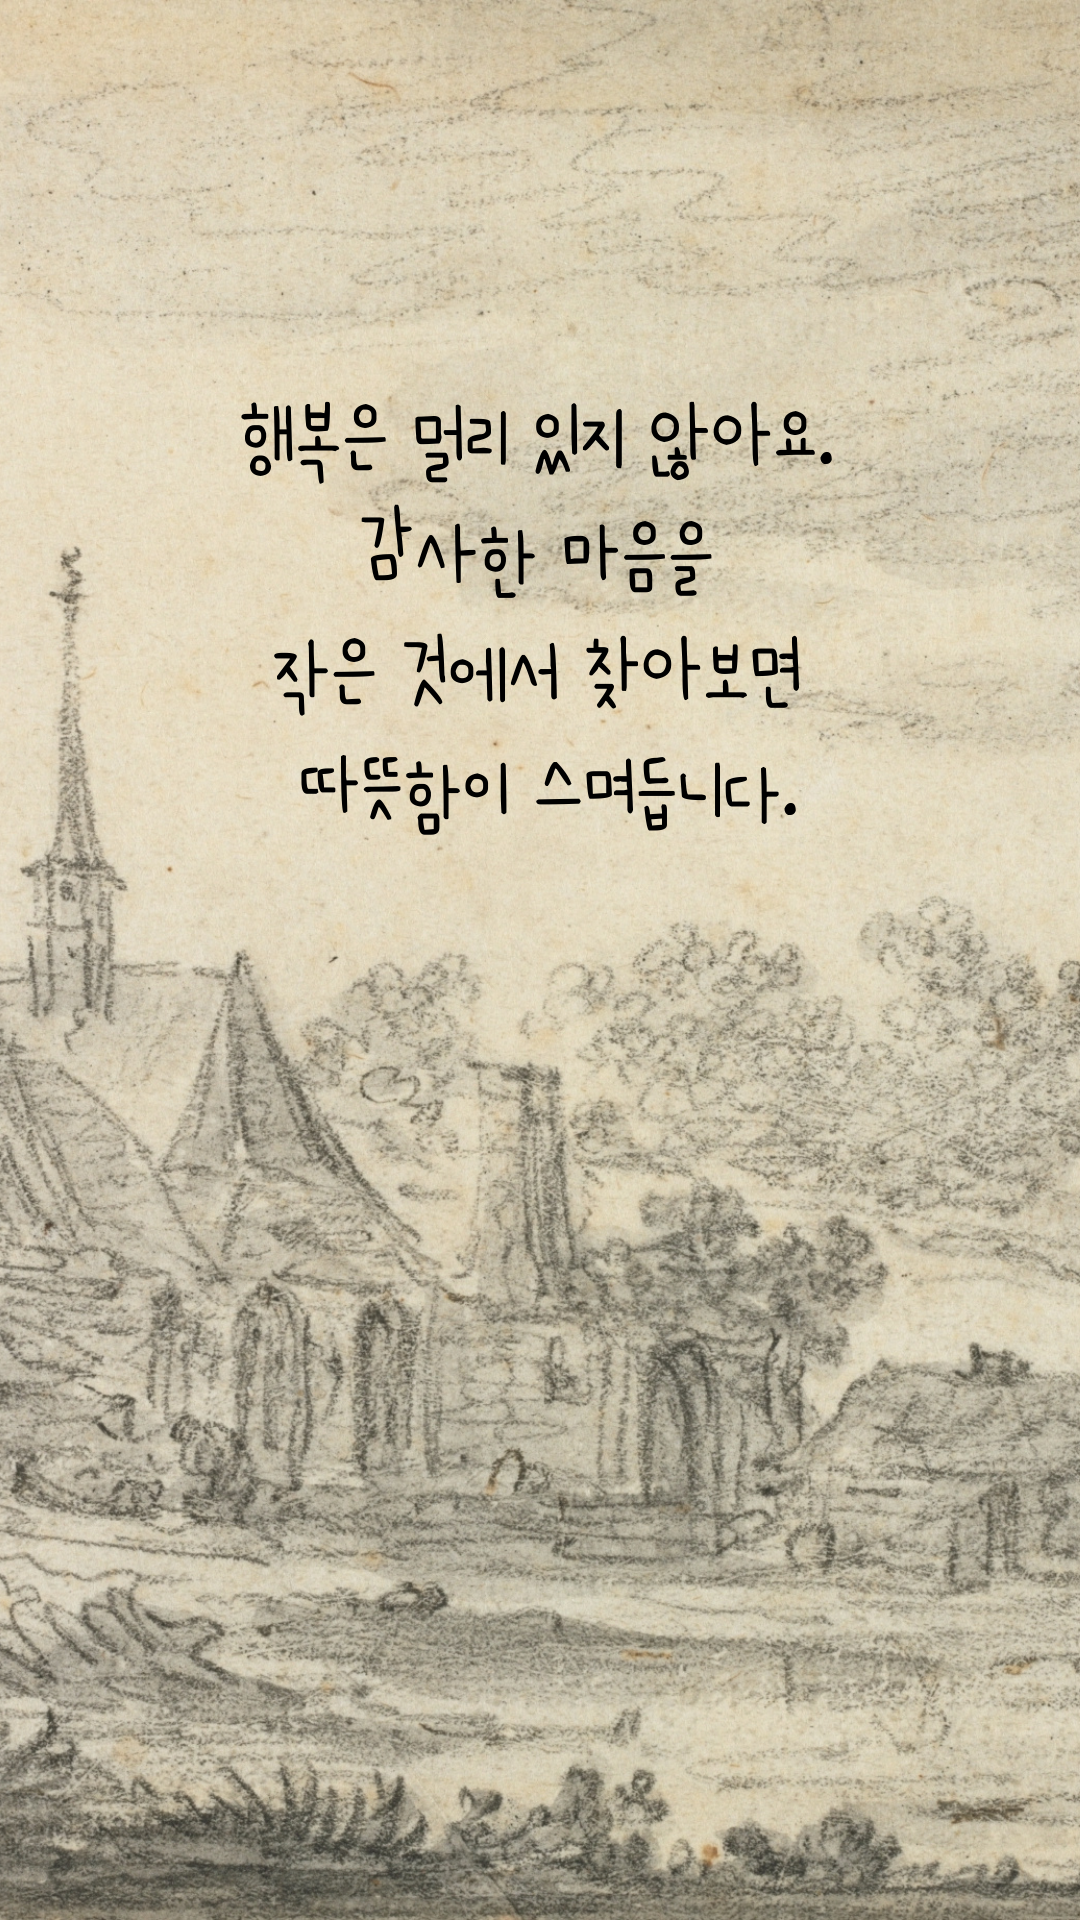 행복은 멀리 있지 않아요.
감사한 마음을
작은 것에서 찾아보면
따뜻함이 스며듭니다.